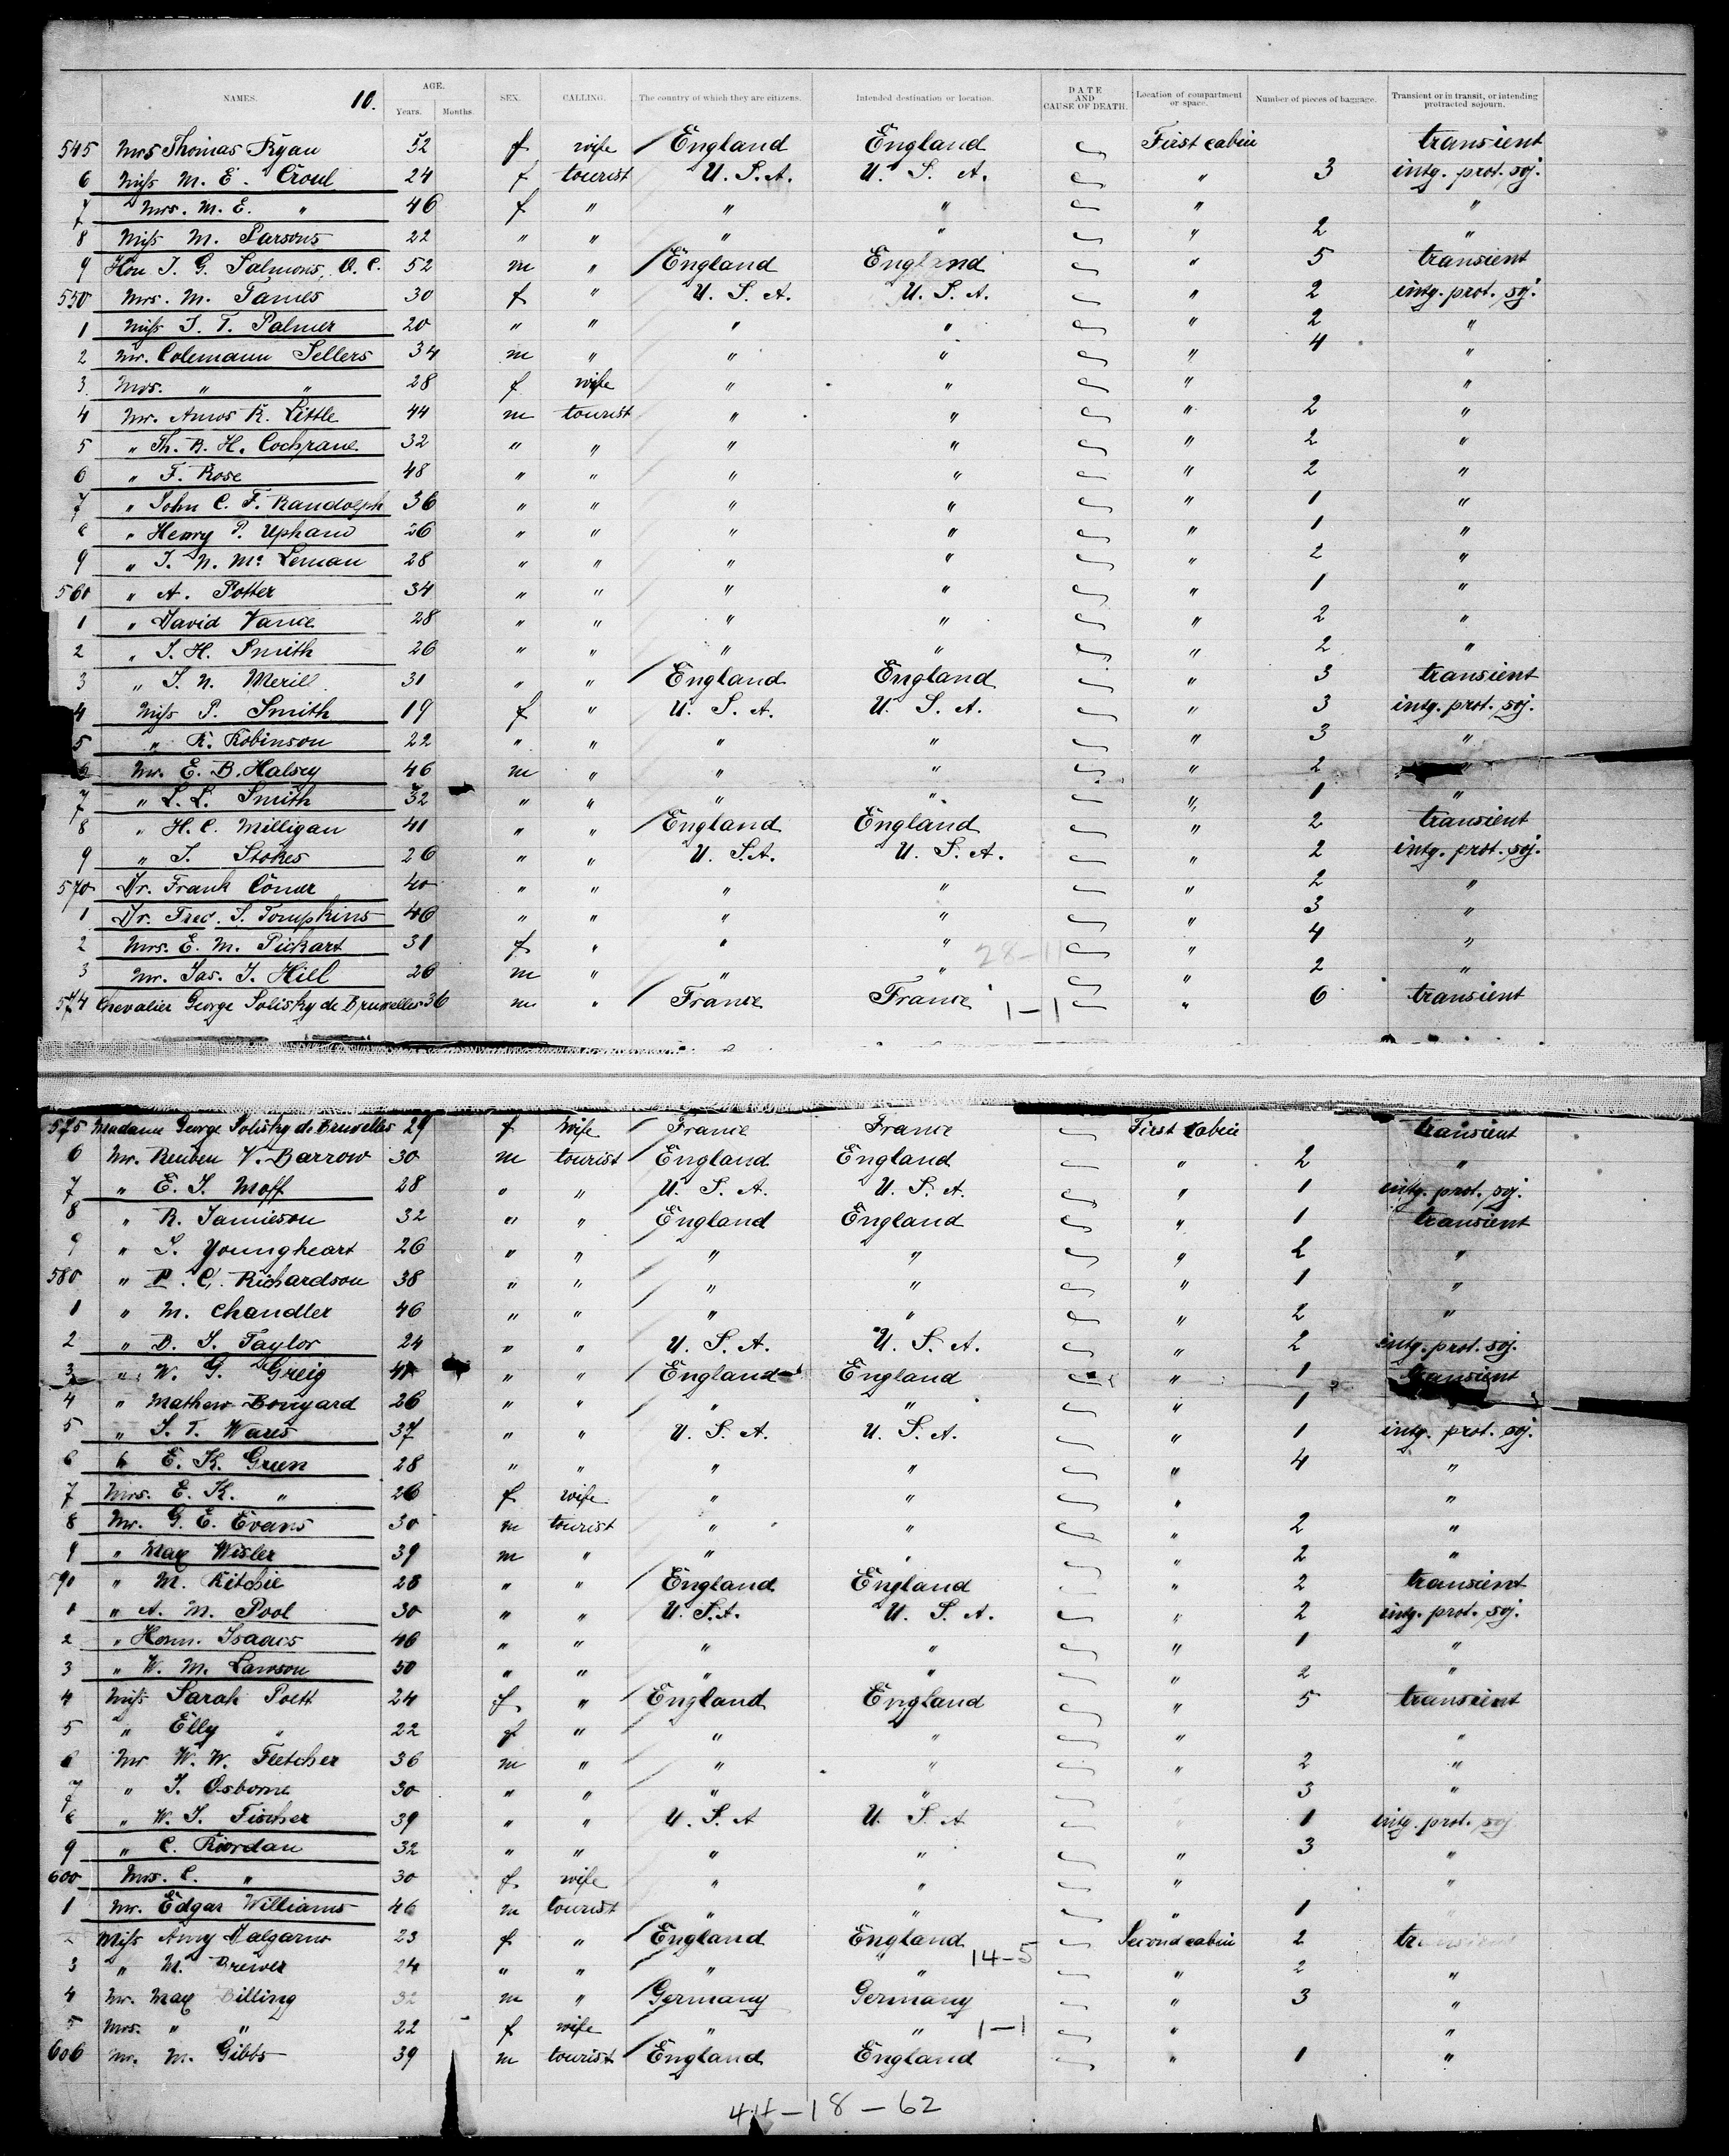 10.
NAMES. AGE. Years. Months. SEX. CALLING. The country of which they are citizens. Intended destination or location. DATE AND CAUSE OF DEATH. Location of compartment or space. Number of pieces of baggage. Transient or in transit, or intending protracted sojourn.
545 Mrs Thomas Ryan 52 f wife England England First cabin transient
6 Miss M. E. Croul 24 f tourist U. S. A. U. S. A. " 3 intg. prot. soj.
7 Mrs. M. E. " 46 f " " " " "
8 Miss M. Parsons 22 " " " " " 2 "
9 Hon J. G. Salmons, Q. C. 52 m " England England " 5 transient
550 Mrs. M. James 30 f " U. S. A. U. S. A. " 2 intg. prot. soj.
1 Miss J. T. Palmer 20 " " " " " 2 "
2 Mr. Colemann Sellers 34 m " " " " 4 "
3 Mrs. " " 28 f wife " " " "
4 Mr. Amos R. Little 44 m tourist " " " 2 "
5 " Th. B. H. Cochrane 32 " " " " " 2 "
6 " F. Rose 48 " " " " " 2 "
7 " John C. F. Randolph 36 " " " " " 1 "
8 " Henry P. Upham 26 " " " " " 1 "
9 " J. N. Mc Leman 28 " " " " " 2 "
560 " A. Potter 34 " " " " " 1 "
1 " David Vance 28 " " " " " 2 "
2 " J. H. Smith 26 " " " " " 2 "
3 " J. N. Merill 31 " " England England " 3 transient
4 Miss P. Smith 19 f " U. S. A. U. S. A. " 3 intg. prot. soj.
5 " K. Robinson 22 " " " " " 3 "
6 Mr. E. B. Halsey 46 m " " " " 2 "
7 " L. L. Smith 32 " " " " " 1 "
8 " H. C. Milligan 41 " " England England " 2 transient
9 " J. Stokes 26 " " U. S. A. U. S. A. " 2 intg. prot. soj.
570 Dr. Frank Comer 40 " " " " " 2 "
1 Dr. Fred. J. Tompkins 46 " " " " " 3 "
2 Mrs. E. M. Pickart 31 f " " " " 4 "
28-11
3 Mr. Jas. J. Hill 26 m " " " " 2 "
574 Chevalier George Solisky de Bruxelles 36 m " France France " 6 transient
1-1
575 Madame George Solisky de Bruxelles 29 f wife France France First cabin transient
6 Mr. Reuben V. Barrow 30 m tourist England England " 2 "
7 " E. J. Moff 28 " " U. S. A. U. S. A. " 1 intg. prot. soj.
8 " R. Jamieson 32 " " England England " 1 transient
9 " S. Youngheart 26 " " " " " 2 "
580 " P. C. Richardson 38 " " " " " 1 "
1 " M. Chandler 46 " " " " " 2 "
2 " B. J. Taylor 24 " " U. S. A. U. S. A. " 2 intg. prot. soj.
3 " W. G. Greig " " England England " 1 transient
4 " Mathew Bongard 26 " " " " " 1
5 " J. T. Wares 37 " " U. S. A. U. S. A. " 1 intg. prot. soj.
6 " E. K. Green 28 " " " " " 4 "
7 Mrs. E. K. " 26 f wife " " " "
8 Mr. G. E. Evans 30 m tourist " " " 2 "
9 " Max Wisler 39 m " " " " 2 "
90 " M. Ritchie 28 " " England England " 2 transient
1 " A. M. Pool 30 " " U. S. A. U. S. A. " 2 intg. prot. soj.
2 " Herm. Isaacs 46 " " " " " 1 "
3 " W. M. Lawson 50 " " " " " 2 "
4 Miss Sarah Poett 24 f " England England " 5 transient
5 " Elly " 22 f " " " " "
6 Mr W. W. Fletcher 36 m " " " " 2 "
7 " J. Osborne 30 " " " " 3 "
8 " W. J. Fischer 39 " " U. S. A U. S. A " 1 intg. prot. soj
9 " C. Riordan 32 " " " " " 3 "
600 Mrs. C. " 30 f wife " " " "
1 Mr. Edgar Williams 46 m tourist " " " 1 "
2 Miss Amy Dalgarno 23 f " England England Second cabin 2 transient
14-5
3 " M. Brewer 24 " " " " " 2 "
4 Mr. Max Billing 32 m " Germany Germany " 3 "
5 Mrs. " " 22 f wife " " " "
1-1
606 Mr. M. Gibbs 39 m tourist England England " 1 "
44-18-62